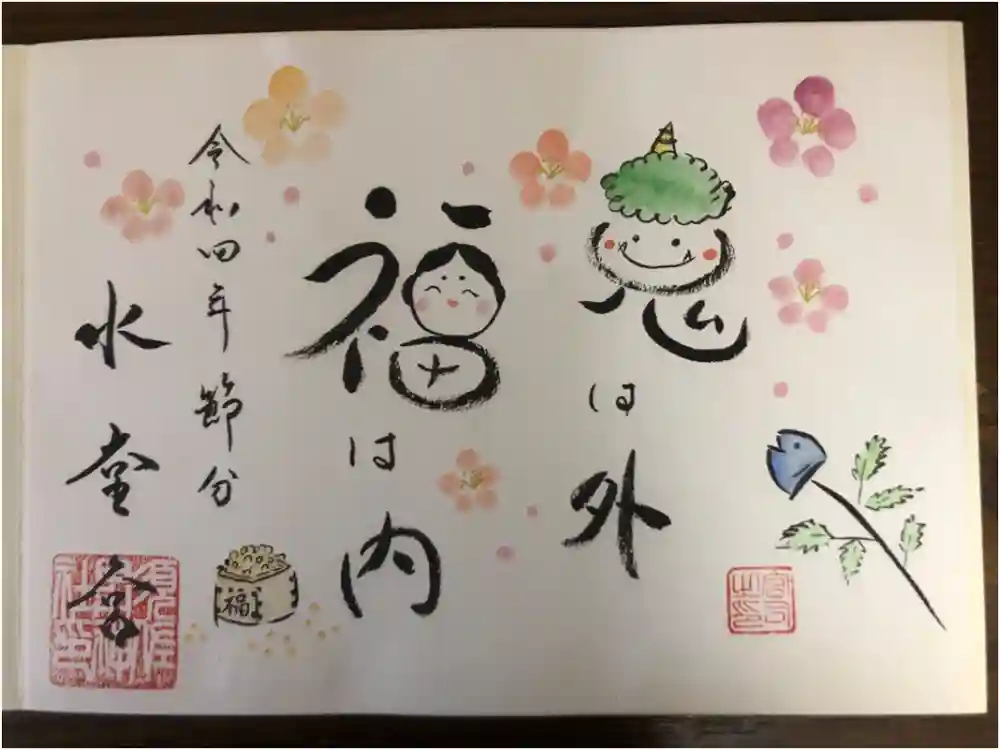 鬼は外
福は内
令和四年 節分
水堂
福